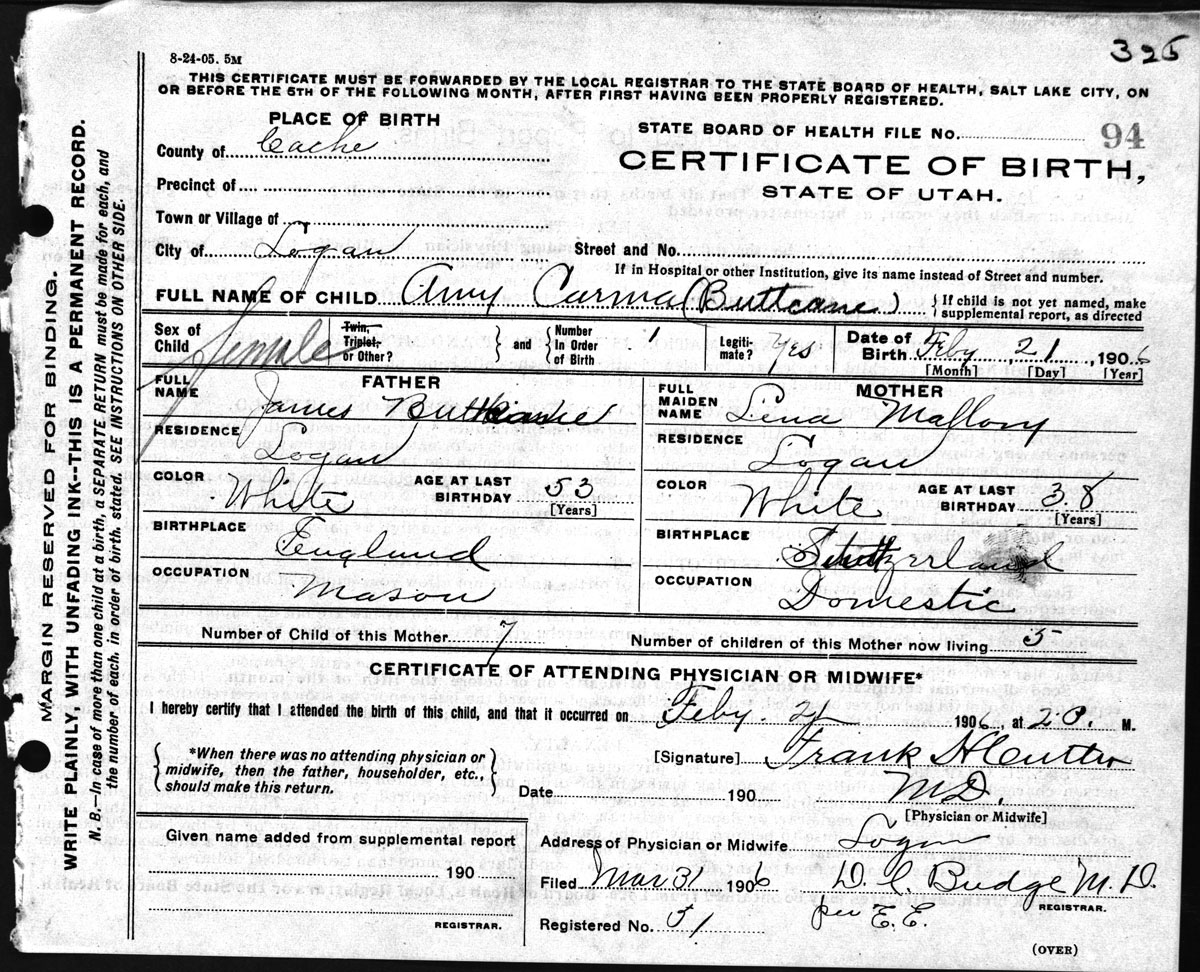 325
8-24-05. 5M
THIS CERTIFICATE MUST BE FORWARDED BY THE LOCAL REGISTRAR TO THE STATE BOARD OF HEALTH, SALT LAKE CITY, ON
OR BEFORE THE 5TH OF THE FOLLOWING MONTH, AFTER FIRST HAVING BEEN PROPERLY REGISTERED.
PLACE OF BIRTH
STATE BOARD OF HEALTH FILE No. 94
County of Cache
CERTIFICATE OF BIRTH,
STATE OF UTAH.
Precinct of
Town or Village of
City of Logan Street and No.
If in Hospital or other Institution, give its name instead of Street and number.
FULL NAME OF CHILD Amy Carma (Buttcane) { If child is not yet named, make
supplemental report, as directed
Sex of Child Female Twin, Triplet, or Other? } and { Number In Order of Birth 1 Legiti-mate? Yes Date of Birth Feby 21, 1906
[Month] [Day] [Year]
FATHER
FULL NAME James
RESIDENCE Logan
COLOR White AGE AT LAST BIRTHDAY 53
[Years]
BIRTHPLACE England
OCCUPATION Mason
MOTHER
FULL MAIDEN NAME Lena Mallory
RESIDENCE Logan
COLOR White AGE AT LAST BIRTHDAY 38
[Years]
BIRTHPLACE
OCCUPATION Domestic
Number of Child of this Mother 7 Number of children of this Mother now living 5
CERTIFICATE OF ATTENDING PHYSICIAN OR MIDWIFE*
I hereby certify that I attended the birth of this child, and that it occurred on Feby. 21 1906, at M.
{ *When there was no attending physician or
midwife, then the father, householder, etc.,
should make this return. }
[Signature] Frank H Cutler
Date 190 M.D.
[Physician or Midwife]
Given name added from supplemental report
190
REGISTRAR.
Address of Physician or Midwife Logan
Filed Mar 31 1906 D. C. Budge M.D.
REGISTRAR.
Registered No. 51 per E.E.
(OVER)
MARGIN RESERVED FOR BINDING.
WRITE PLAINLY, WITH UNFADING INK--THIS IS A PERMANENT RECORD.
N. B.—In case of more than one child at a birth, a SEPARATE RETURN must be made for each, and
the number of each, in order of birth, stated. SEE INSTRUCTIONS ON OTHER SIDE.